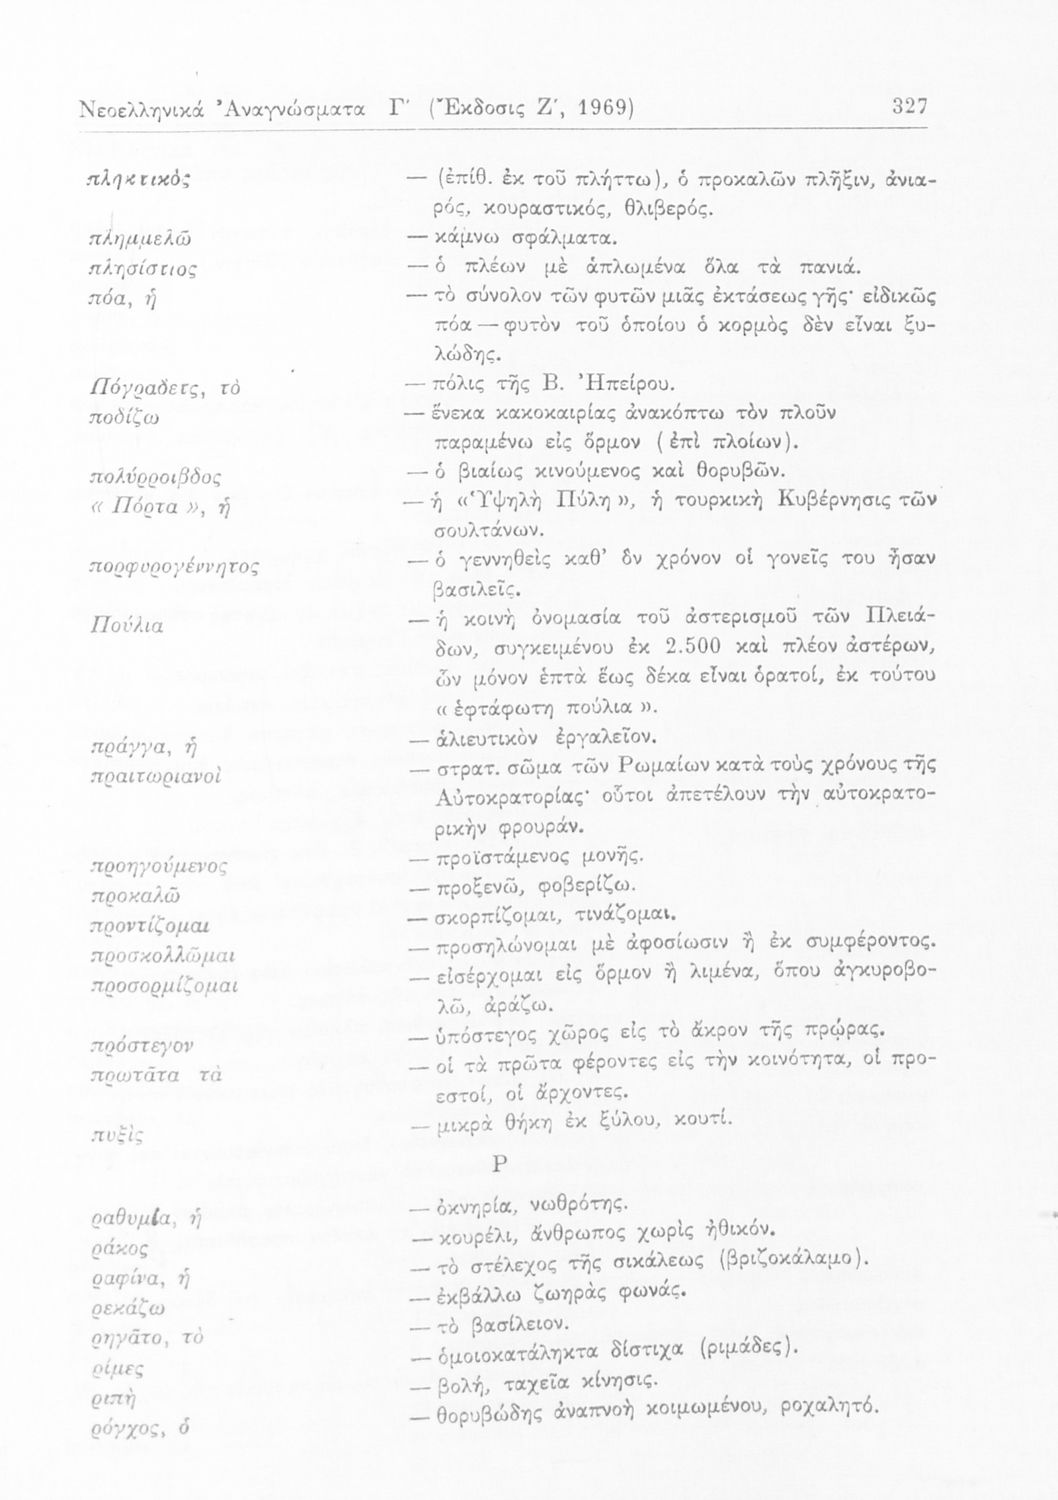 Νεοελληνικά Ἀναγνώσματα Γ΄ (Ἔκδοσις Ζ΄, 1969) 327
πληκτικὸς — (ἐπίθ. ἐκ τοῦ πλήττω), ὁ προκαλῶν πλῆξιν, ἀνια-
ρός, κουραστικός, θλιβερός.
πλημμελῶ — κάμνω σφάλματα.
πλησίστιος — ὁ πλέων μὲ ἁπλωμένα ὅλα τὰ πανιά.
πόα, ἡ — τὸ σύνολον τῶν φυτῶν μιᾶς ἐκτάσεως γῆς· εἰδικῶς
πόα — φυτὸν τοῦ ὁποίου ὁ κορμὸς δὲν εἶναι ξυ-
λώδης.
Πόγραδετς, τὸ — πόλις τῆς Β. Ἠπείρου.
ποδίζω — ἕνεκα κακοκαιρίας ἀνακόπτω τὸν πλοῦν
παραμένω εἰς ὅρμον (ἐπὶ πλοίων).
πολύρροιβδος — ὁ βιαίως κινούμενος καὶ θορυβῶν.
« Πόρτα », ἡ — ἡ «Ὑψηλὴ Πύλη», ἡ τουρκικὴ Κυβέρνησις τῶν
σουλτάνων.
πορφυρογέννητος — ὁ γεννηθεὶς καθ’ ὃν χρόνον οἱ γονεῖς του ἦσαν
βασιλεῖς.
Πούλια — ἡ κοινὴ ὀνομασία τοῦ ἀστερισμοῦ τῶν Πλειά-
δων, συγκειμένου ἐκ 2.500 καὶ πλέον ἀστέρων,
ὧν μόνον ἑπτὰ ἕως δέκα εἶναι ὁρατοί, ἐκ τούτου
« ἑφτάφωτη πούλια ».
πράγγα, ἡ — ἁλιευτικὸν ἐργαλεῖον.
πραιτωριανοὶ — στρατ. σῶμα τῶν Ρωμαίων κατὰ τοὺς χρόνους τῆς
Αὐτοκρατορίας· οὗτοι ἀπετέλουν τὴν αὐτοκρατο-
ρικὴν φρουράν.
προηγούμενος — προϊστάμενος μονῆς.
προκαλῶ — προξενῶ, φοβερίζω.
προντίζομαι — σκορπίζομαι, τινάζομαι.
προσκολλῶμαι — προσηλώνομαι μὲ ἀφοσίωσιν ἢ ἐκ συμφέροντος.
προσορμίζομαι — εἰσέρχομαι εἰς ὅρμον ἢ λιμένα, ὅπου ἀγκυροβο-
λῶ, ἀράζω.
πρόστεγον — ὑπόστεγος χῶρος εἰς τὸ ἄκρον τῆς πρῴρας.
πρωτᾶτα τὰ — οἱ τὰ πρῶτα φέροντες εἰς τὴν κοινότητα, οἱ προ-
εστοί, οἱ ἄρχοντες.
πυξὶς — μικρὰ θήκη ἐκ ξύλου, κουτί.
Ρ
ραθυμία, ἡ — ὀκνηρία, νωθρότης.
ράκος — κουρέλι, ἄνθρωπος χωρὶς ἠθικόν.
ραφίνα, ἡ — τὸ στέλεχος τῆς σικάλεως (βριζοκάλαμο).
ρεκάζω — ἐκβάλλω ζωηρὰς φωνάς.
ρηγᾶτο, τὸ — τὸ βασίλειον.
ρίμες — ὁμοιοκατάληκτα δίστιχα (ριμάδες).
ριπὴ — βολή, ταχεῖα κίνησις.
ρόγχος, ὁ — θορυβώδης ἀναπνοὴ κοιμωμένου, ροχαλητό.